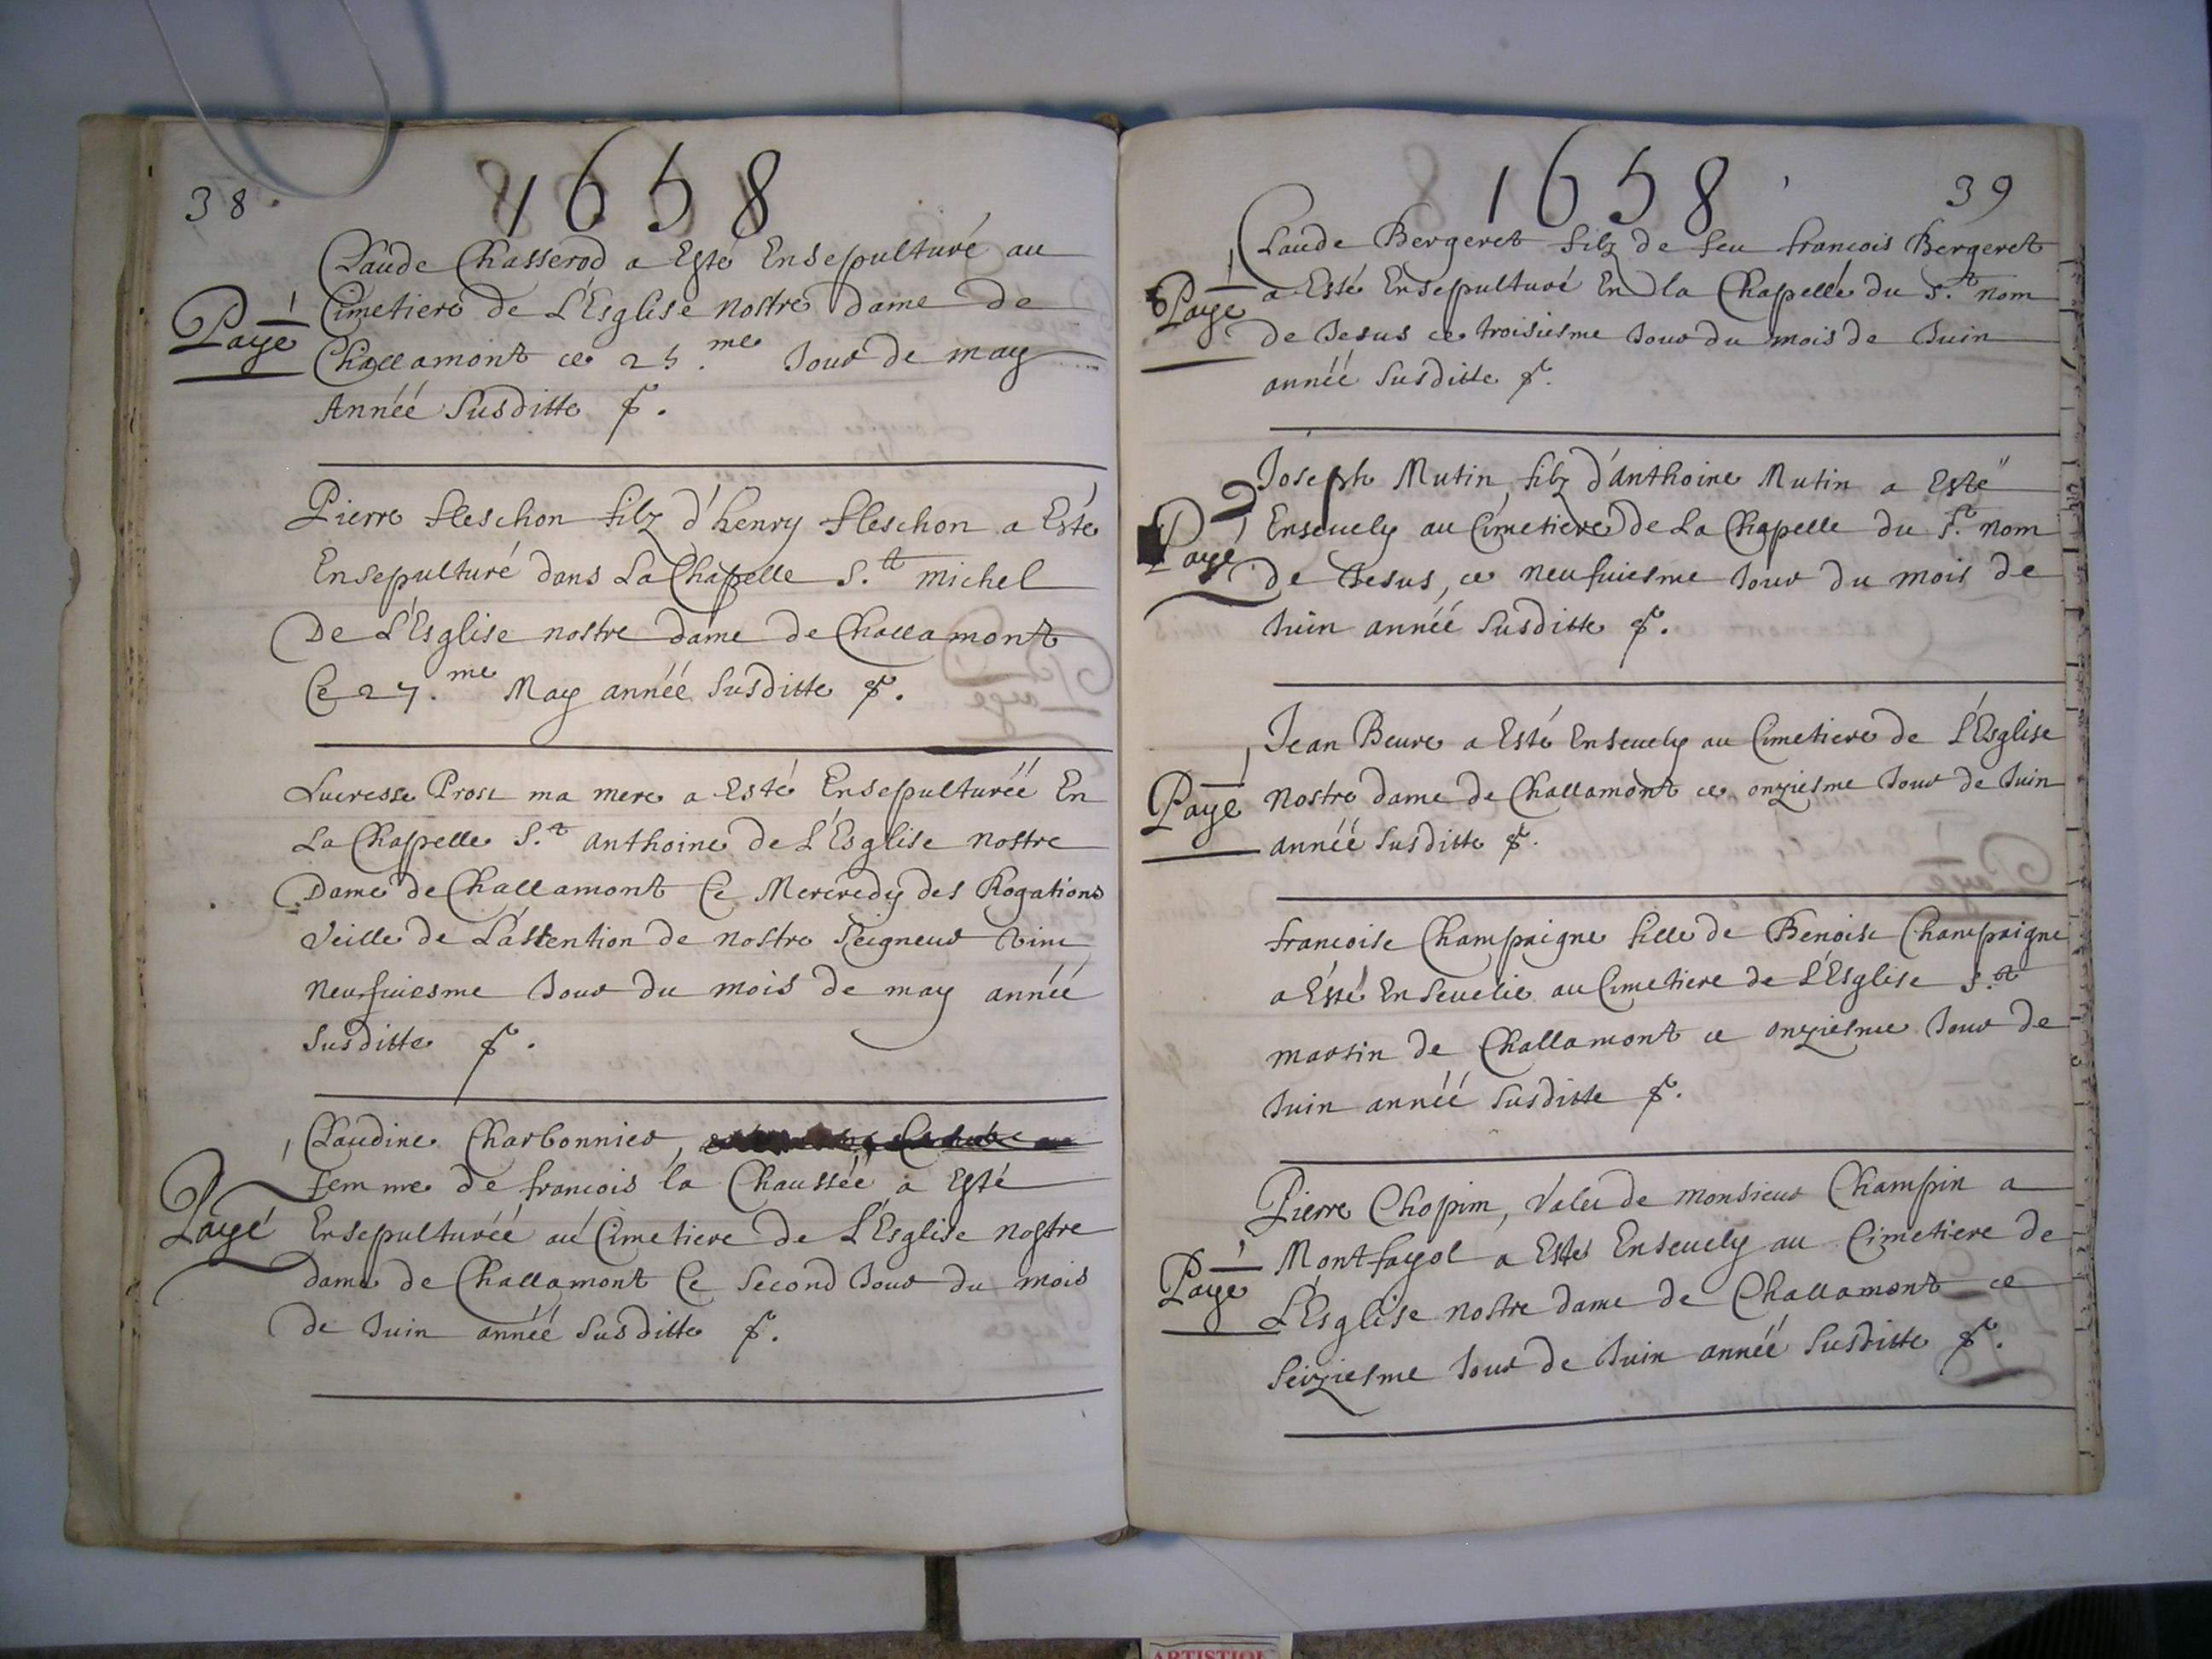 38.
1658
Claude Chasserod a Esté Ensepulturé au
Payé
Cimetiere de L'Esglise nostre dame de
Challamont ce 25.me Jour de may
Année susditte
Pierre fleschon filz d'henry fleschon a Esté
Ensepulturé dans La Chapelle S.tt michel
De L'Esglise nostre dame de Challamont
Ce 27.me May année susditte
Lucresse Prost ma mere a Esté Ensepulturéé En
La Chapelle S.t anthoine de L'Esglise nostre
Dame de Challamont Ce Mercredy des Rogations
Veille de L'astention de nostre Seigneur Vint
neufuiesme Jour du mois de may année
susditte
Claudine Charbonnier,
femme de francois la Chaussée a Esté
Payé
Ensepulturéé au Cimetiere de L'Esglise nostre
dame de Challamont Ce second Jour du mois
de Juin année susditte
1658
39
Claude Bergeret filz de feu francois Bergeret
Payé
a Esté Ensepulturé En la Chapelle du S.t nom
de Jesus ce troisiesme Jour du mois de Juin
année susditte
Joseph Mutin, filz d'anthoine Mutin a Esté
Payé
Enseuely au Cimetiere de La Chapelle du S.t nom
de Jesus, ce neufuiesme Jour du mois de
Juin année susditte
Jean Beure a Esté Enseuely au Cimetiere de L'Esglise
Payé
nostre dame de Challamont ce onziesme Jour de Juin
année susditte
francoise Champaigne fille de Benoist Champaigne
a Esté Enseuelie au Cimetiere de L'Esglise S.tt
martin de Challamont ce onziesme Jour de
Juin année susditte
Pierre Chopin, Valet de monsieur Champin a
Payé
Montfayol a Esté Enseuely au Cimetiere de
L'Esglise nostre dame de Challamont ce
seiziesme Jour de Juin année susditte